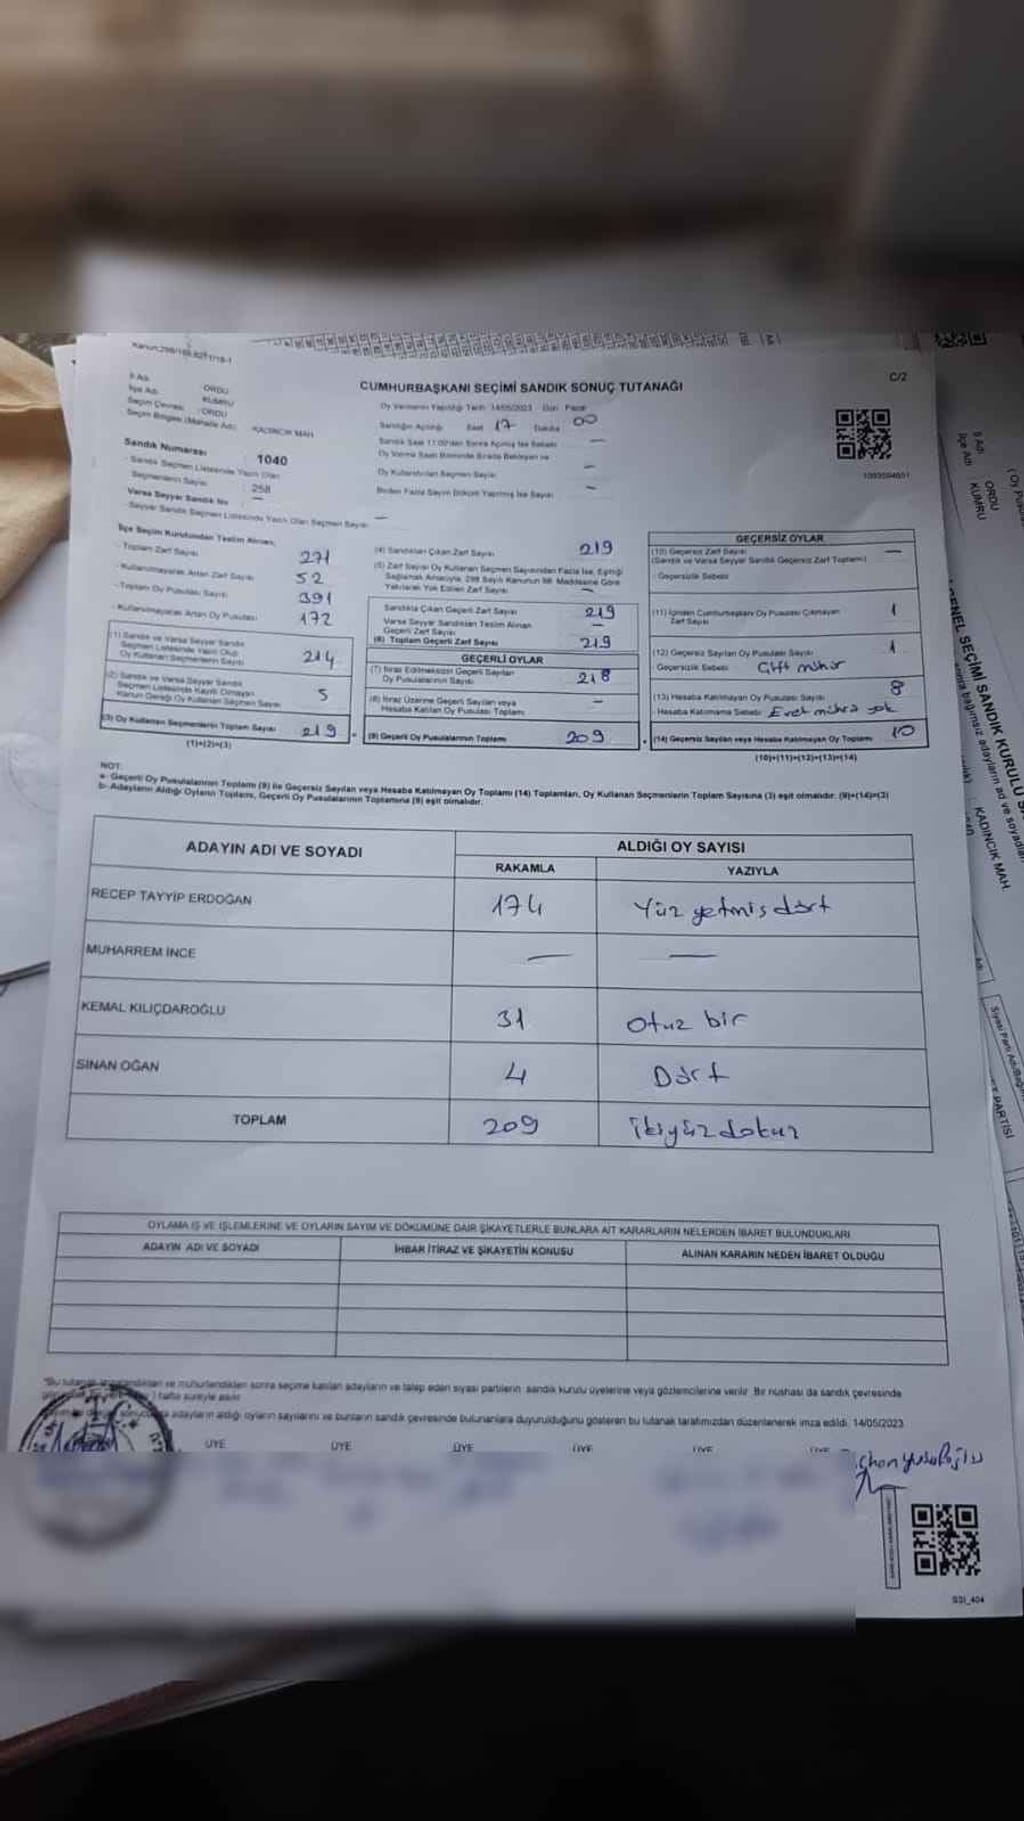 CUMHURBAŞKANI SEÇİMİ SANDIK SONUÇ TUTANAĞI
C/2
İl Adı ORDU
İlçe Adı KUMRU
Seçim Çevresi :ORDU
Seçim Bölgesi (Mahalle Adı) KADINCIK MAH.
Oy Vermenin Yapıldığı Tarih 14/05/2023 Gün Pazar
Sandığın Açılışı Saat 17 Dakika 00
Sandık Numarası 1040
Sandık Seçmen Listesinde Yazılı Olan
Seçmenlerin Sayısı : 258
Varsa Seyyar Sandık No —
Seyyar Sandık Seçmen Listesinde Yazılı Olan Seçmen Sayısı —
Oy Kullandırılan Seçmen Sayısı —
1003094051
İlçe Seçim Kurulundan Teslim Alınan;
- Toplam Zarf Sayısı 271
- Kullanılmayarak Artan Zarf Sayısı 52
- Toplam Oy Pusulası Sayısı 391
- Kullanılmayarak Artan Oy Pusulası 172
(1) Sandık ve Varsa Seyyar Sandık
Seçmen Listesinde Yazılı Olup
Oy Kullanan Seçmenlerin Sayısı 214
(2) Sandık ve Varsa Seyyar Sandık
Seçmen Listesinde Kayıtlı Olmayan
Kanun Gereği Oy Kullanan Seçmen Sayısı 5
(3) Oy Kullanan Seçmenlerin Toplam Sayısı 219
(1)+(2)=(3)
(4) Sandıktan Çıkan Zarf Sayısı 219
(5) Zarf Sayısı Oy Kullanan Seçmen Sayısından Fazla İse, Eşitliği
Sağlamak Amacıyla, 298 Sayılı Kanunun 98. Maddesine Göre
Yakılarak Yok Edilen Zarf Sayısı —
Sandıkta Çıkan Geçerli Zarf Sayısı 219
Varsa Seyyar Sandıktan Teslim Alınan
Geçerli Zarf Sayısı —
(6) Toplam Geçerli Zarf Sayısı 219
GEÇERLİ OYLAR
(7) İtiraz Edilmeksizin Geçerli Sayılan
Oy Pusulalarının Sayısı 218
(8) İtiraz Üzerine Geçerli Sayılan veya
Hesaba Katılan Oy Pusulası Toplamı —
(9) Geçerli Oy Pusulalarının Toplamı 209
GEÇERSİZ OYLAR
(10) Geçersiz Zarf Sayısı —
(Sandık ve Varsa Seyyar Sandık Geçersiz Zarf Toplamı)
- Geçersizlik Sebebi
(11) İçinden Cumhurbaşkanı Oy Pusulası Çıkmayan
Zarf Sayısı 1
(12) Geçersiz Sayılan Oy Pusulası Sayısı 1
Geçersizlik Sebebi Çift mühür
(13) Hesaba Katılmayan Oy Pusulası Sayısı 8
- Hesaba Katılmama Sebebi Evet mührü yok
(14) Geçersiz Sayılan veya Hesaba Katılmayan Oy Toplamı 10
(10)+(11)+(12)+(13)=(14)
NOT:
a- Geçerli Oy Pusulalarının Toplamı (9) ile Geçersiz Sayılan veya Hesaba Katılmayan Oy Toplamı (14) Toplamları, Oy Kullanan Seçmenlerin Toplam Sayısına (3) eşit olmalıdır. (9)+(14)=(3)
b- Adayların Aldığı Oyların Toplamı, Geçerli Oy Pusulalarının Toplamına (9) eşit olmalıdır.
ADAYIN ADI VE SOYADI
ALDIĞI OY SAYISI
RAKAMLA YAZIYLA
RECEP TAYYİP ERDOĞAN 174 Yüz yetmiş dört
MUHARREM İNCE — —
KEMAL KILIÇDAROĞLU 31 Otuz bir
SİNAN OĞAN 4 Dört
TOPLAM 209 ikiyüz dokuz
OYLAMA İŞ VE İŞLEMLERİNE VE OYLARIN SAYIM VE DÖKÜMÜNE DAİR ŞİKAYETLERLE BUNLARA AİT KARARLARIN NELERDEN İBARET BULUNDUKLARI
ADAYIN ADI VE SOYADI İHBAR İTİRAZ VE ŞİKAYETİN KONUSU ALINAN KARARIN NEDEN İBARET OLDUĞU
sonra seçime katılan adayların ve talep eden siyasi partilerin sandık kurulu üyelerine veya gözlemcilerine verilir. Bir nüshası da sandık çevresinde
1 hafta süreyle asılır.
adayların aldığı oyların sayılarını ve bunların sandık çevresinde bulunanlara duyurulduğunu gösteren bu tutanak tarafımızdan düzenlenerek imza edildi. 14/05/2023
ÜYE ÜYE ÜYE ÜYE ÜYE ÜYE
SSI_404
İl Adı ORDU
İlçe Adı KUMRU
KADINCIK MAH.